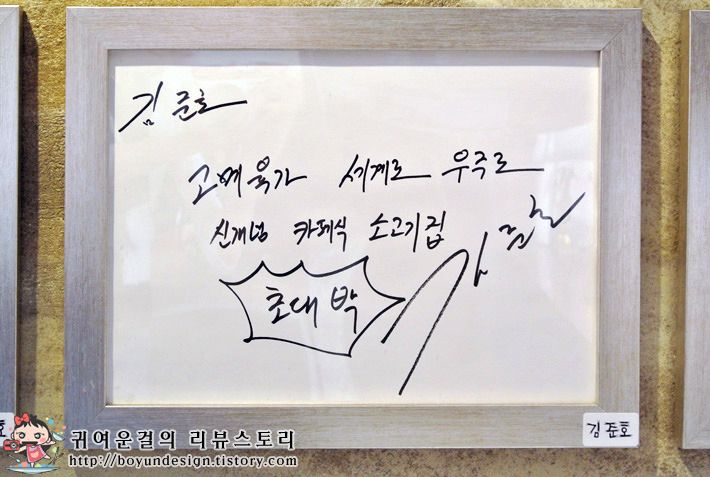 김준호
고메육가 세계로 우주로
신개념 카페식 소고기집
초대박
김준호
귀여운걸의 리뷰스토리
http://boyundesign.tistory.com